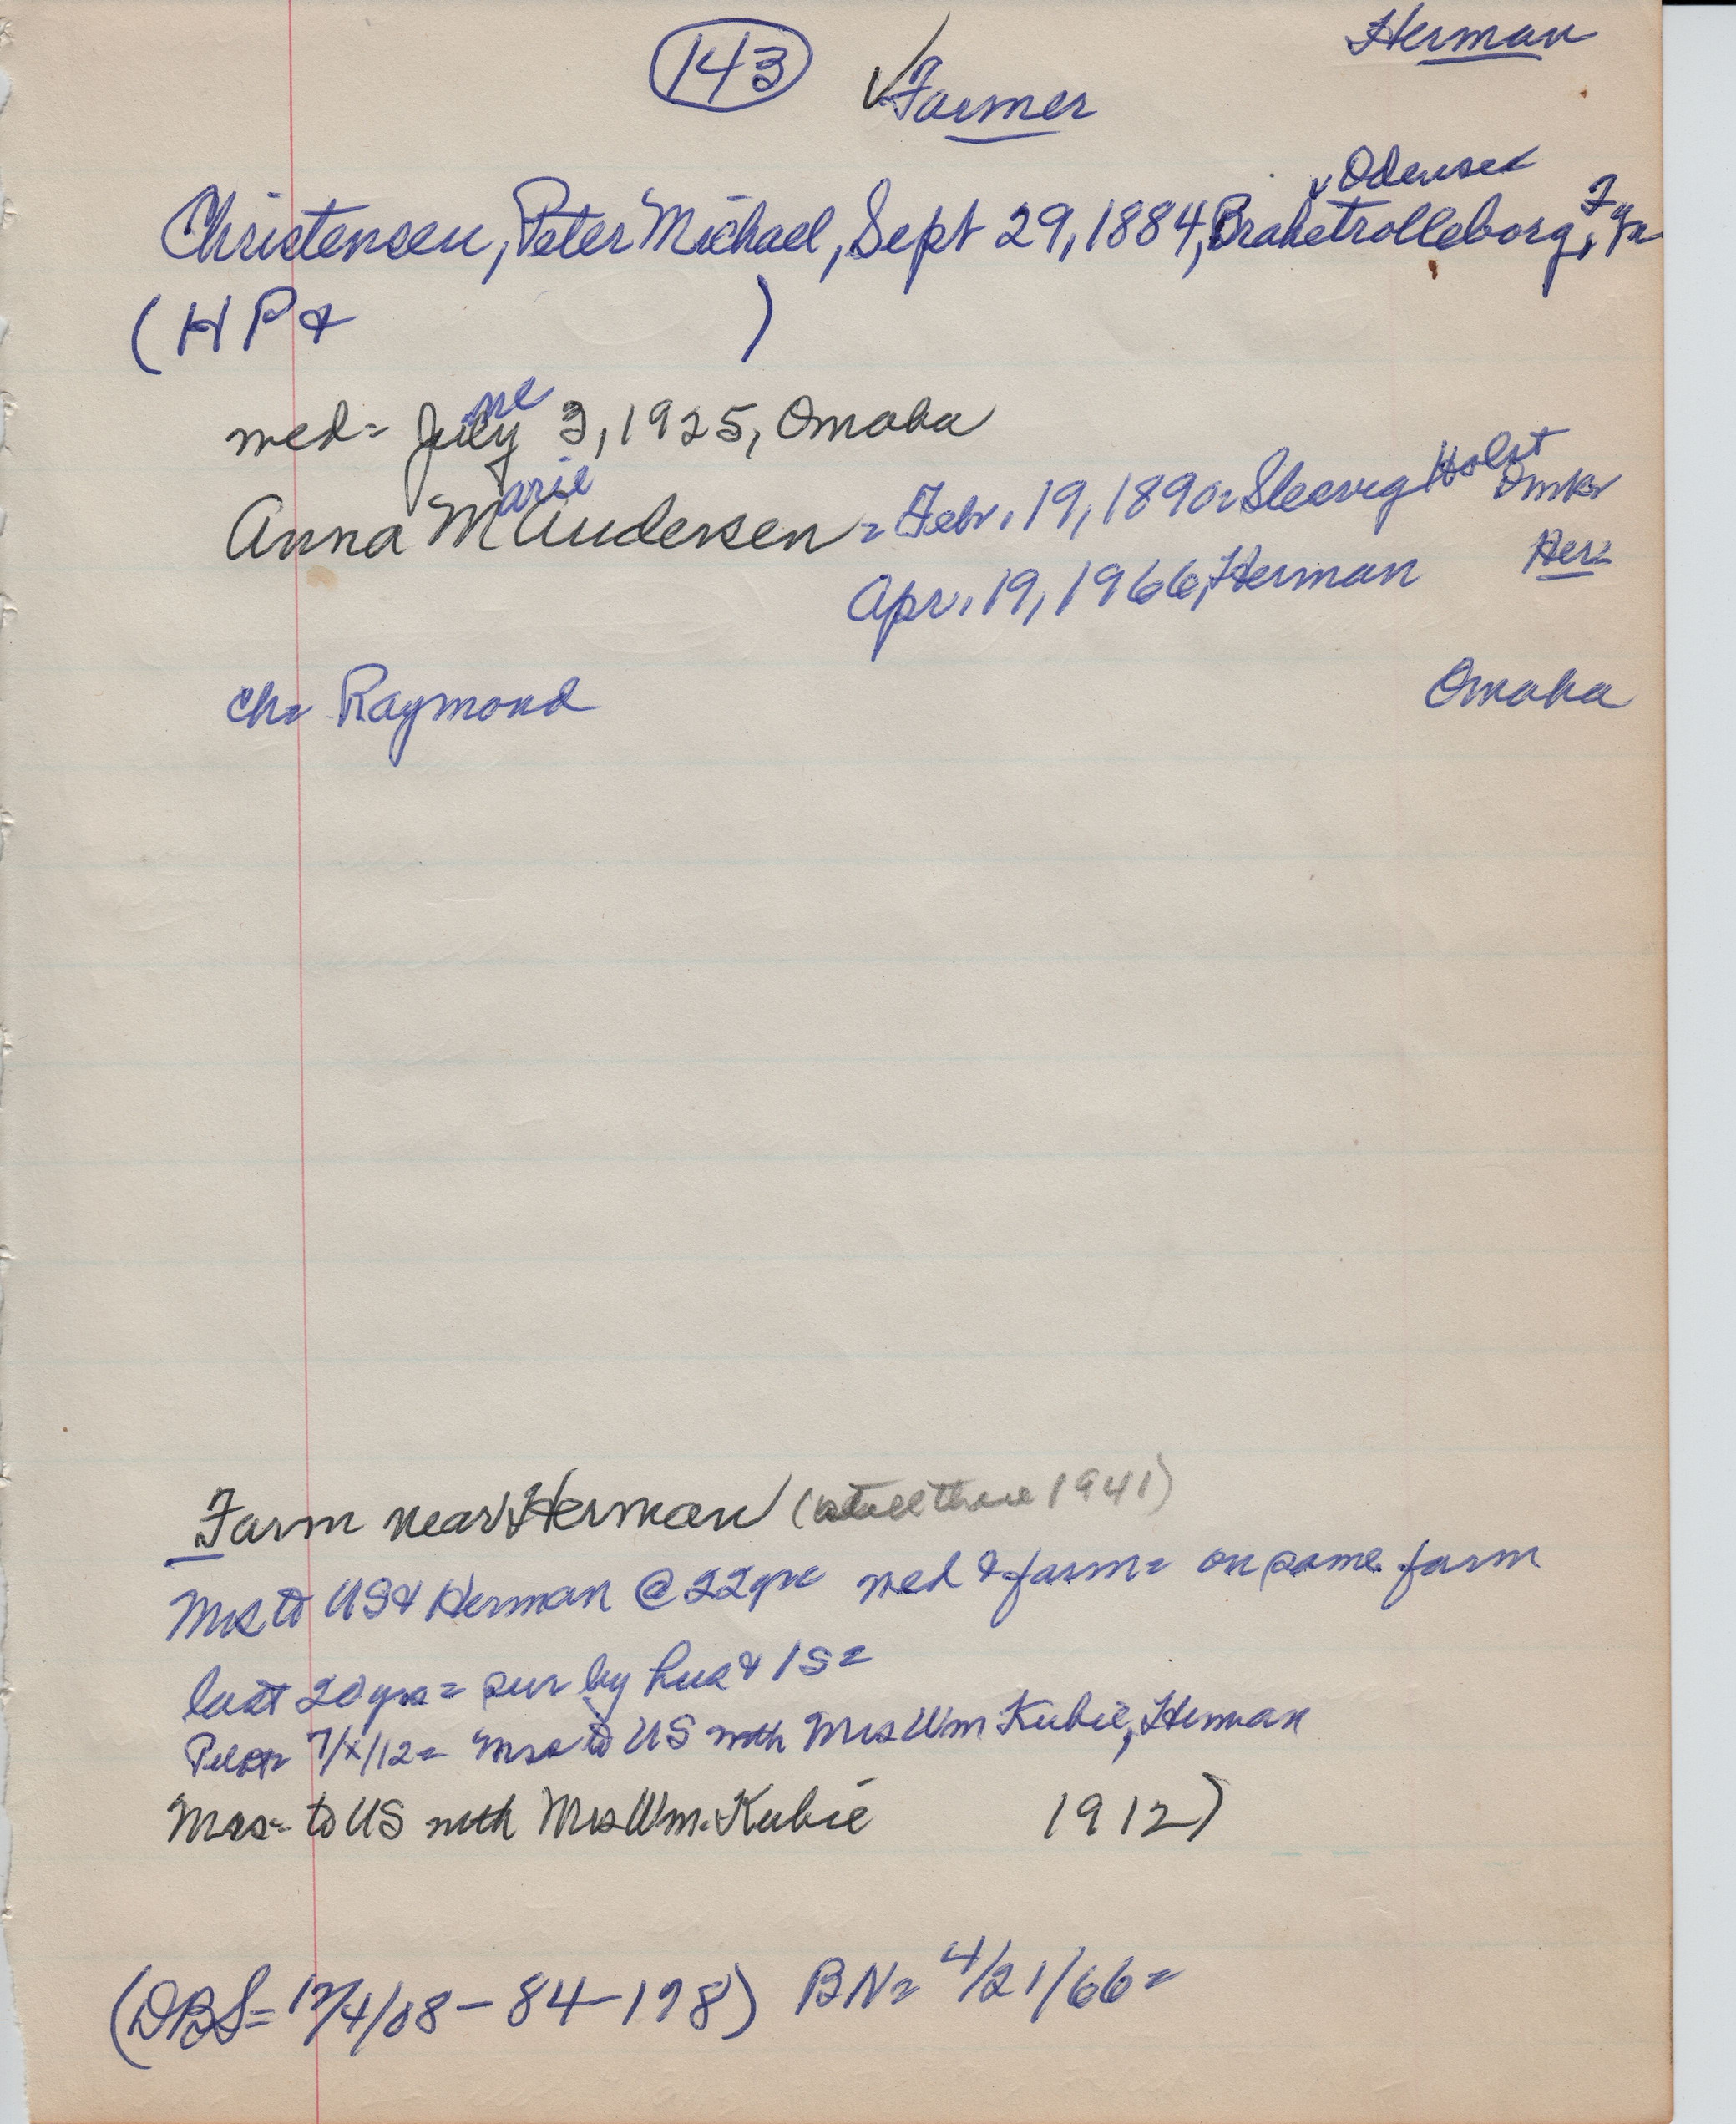 143 Herman
✓Farmer
Odense
Christensen, Peter Michael, Sept 29, 1884, Brahetrolleborg,
(HP& )
ne
med= July 3, 1925, Omaha
arie
Anna M Andersen = Febr. 19, 1890= Slesvig Holst Dmk
Apr. 19, 1966, Herman Her=
ch= Raymond Omaha
Farm near Herman ( 1941)
Mrs to US& Herman @ 22yrs med & farm= on same farm
last 20yrs= sur by hus & 1S=
7/x/12= Mrs to US with Mrs Wm Kubie, Herman
Mrs= to US with Mrs Wm. Kubie 1912)
(DBS= 12/4/08-84-198) BN= 4/21/66=